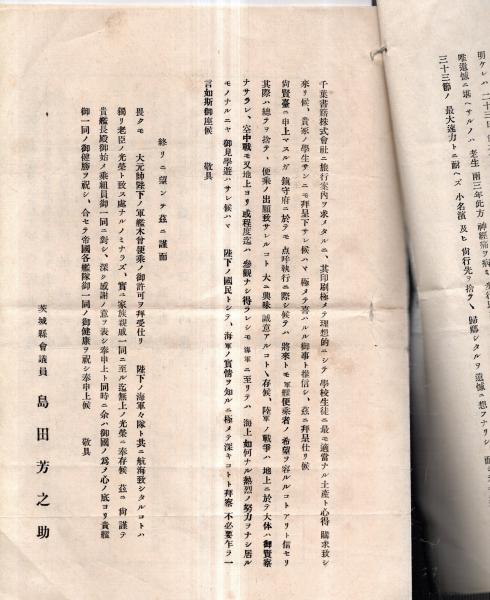 明クレハ 二十三日
唯遺憾ニ堪ヘサルノハ 老生 兩三年此方 神經痛ヲ病ミ
三十三聯ノ 最大速力トニ耐ヘズ 小名濱 及ヒ 尙行先ヲ捨テ、歸鄕シタルヲ 遺憾ニ想フナリシ
千葉書籍株式會社ニ旅行案內ヲ求メタルニ、其印刷極メテ理想的ニシテ 學校生徒ニ最モ適當ナル土產ト心得 購求致シ
來リ候、貴家ノ學生サンニモ拜呈下サレ候ハヾ 極メテ喜ハルヽ御事ト推信シ、茲ニ拜呈仕リ候
尙賢臺ニ申上マスルガ 鎭守府ニ於テモ 點呼執行ニ際シ候テハ 將來トモ 軍艦便乘者ノ 希望ヲ容ルヽコトアリト信セリ
其際ハ總テヲ捨テ、便乘ノ出願致サレルコト 大ニ興味 誠意アルコトヽ存候、陸軍ノ戰爭ハ 地上ニ於テ 大体ハ御賢察
ナサラレ、空中戰モ又地上ヨリ 或程度迄ハ 參觀ナシ得ラレシモ 海軍ニ至リテハ 海上 如何ナル熱烈ノ努力ヲナシ居ル
モノナルニヤ 御見學遊ハサレ候ハヾ 陛下ノ國民トシテ、海軍ノ實情ヲ知ルニ 極メテ深キコトト 拜察 不必要乍ラ一
言如斯御座候 敬具
終リニ望ンデ茲ニ謹而
畏クモ 大元帥陛下ノ軍艦木曾便乘ノ御許可ヲ拜受仕リ 陛下ノ海軍々隊ト共ニ航海致シタルコトハ
獨リ老臣ノ光榮ト致ス處ナルノミナラズ、實ニ家族親戚一同ニ至ル迄無上ノ光榮ニ奉存候 茲ニ 尙謹テ
貴艦長殿御始メ乘組員御一同ニ對シ、深ク感謝ノ意ヲ表シ奉申上ト同時ニ 余ハ御國ノ爲メ心ノ底ヨリ貴艦
御一同ノ御健勝ヲ祝シ、合セテ帝國各艦隊御一同ノ御健康ヲ祝シ奉申上候 敬具
茨城縣會議員 島田芳之助